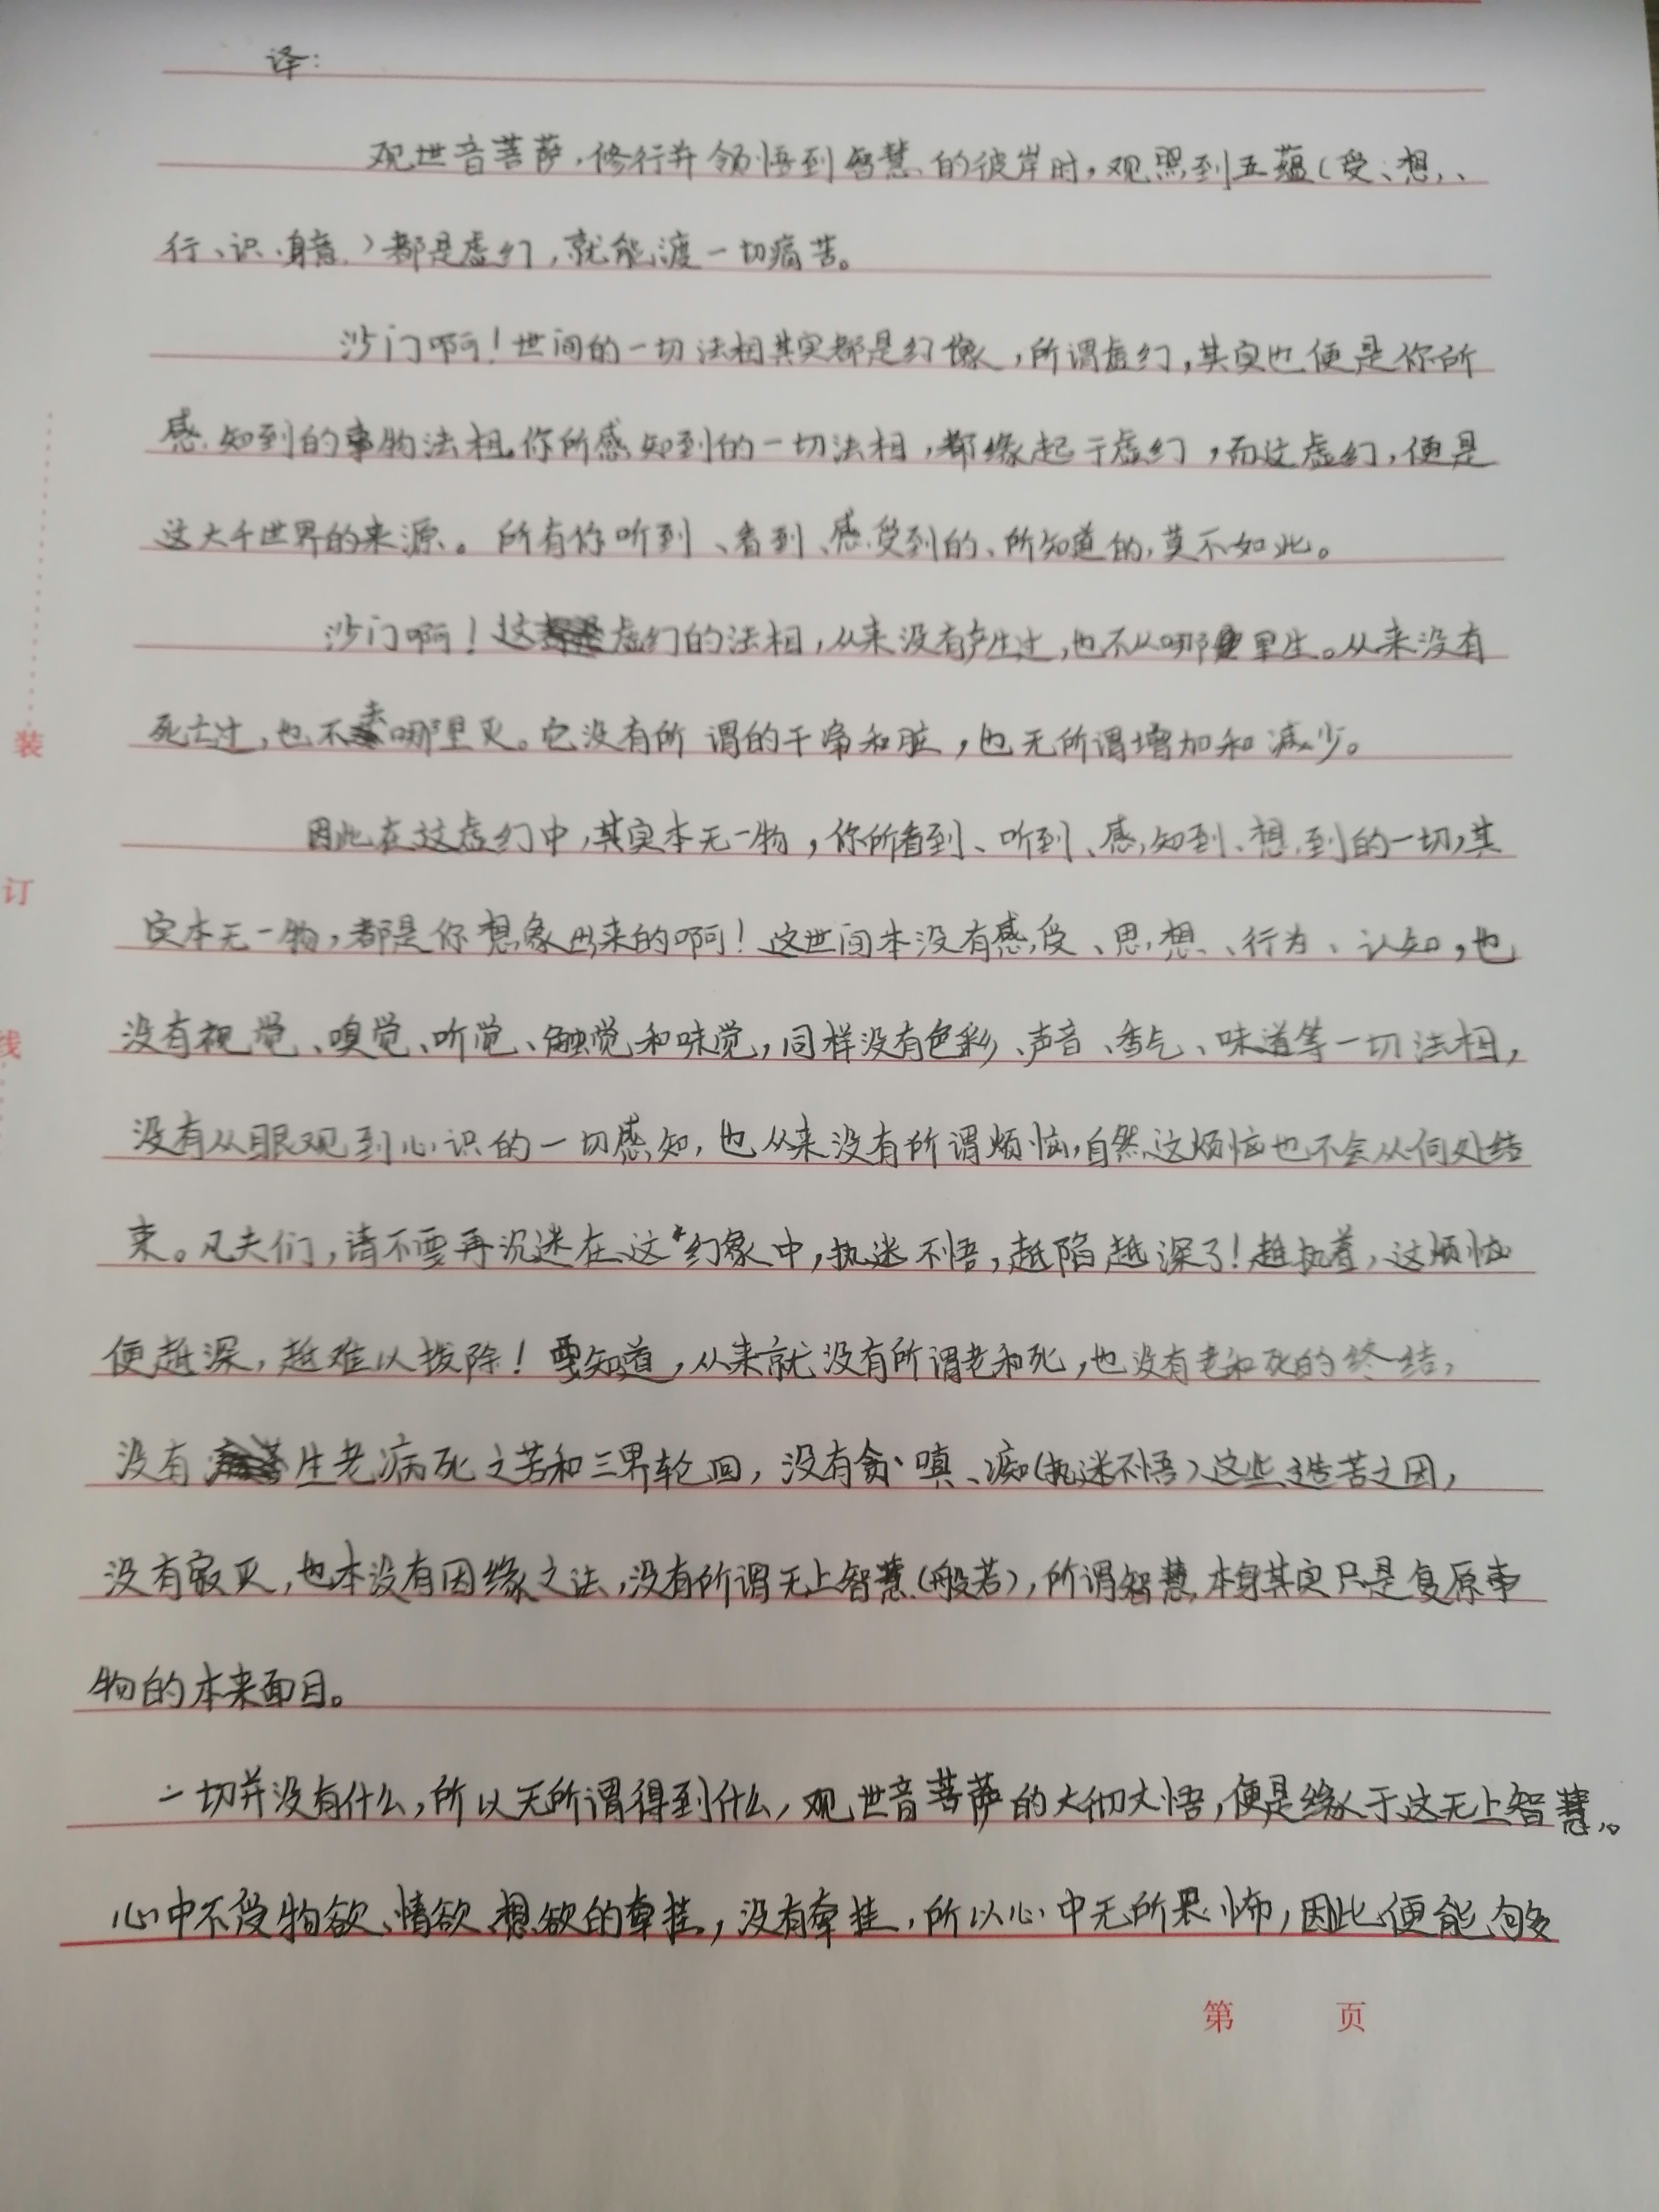 译：
观世音菩萨，修行并领悟到智慧的彼岸时，观照到五蕴（受、想、
行、识、身意）都是虚幻，就能渡一切痛苦。
沙门啊！世间的一切法相其实都是幻像，所谓虚幻，其实也便是你所
感知到的事物法相。你所感知到的一切法相，都缘起于虚幻，而这虚幻，便是
这大千世界的来源。所有你听到、看到、感受到的、所知道的，莫不如此。
沙门啊！这虚幻的法相，从来没有产生过，也不从哪里生。从来没有
死亡过，也不去哪里灭。它没有所谓的干净和脏，也无所谓增加和减少。
因此在这虚幻中，其实本无一物，你所看到、听到、感知到、想到的一切，其
实本无一物，都是你想象出来的啊！这世间本没有感受、思想、行为、认知，也
没有视觉、嗅觉、听觉、触觉和味觉，同样没有色彩、声音、香气、味道等一切法相，
没有从眼观到心识的一切感知，也从来没有所谓烦恼，自然这烦恼也不会从何处结
束。凡夫们，请不要再沉迷在这幻象中，执迷不悟，越陷越深了！越执着，这烦恼
便越深，越难以拔除！要知道，从来就没有所谓老和死，也没有老和死的终结，
没有生老病死之苦和三界轮回，没有贪、嗔、痴（执迷不悟）这些造苦之因，
没有寂灭，也本没有因缘之法，没有所谓无上智慧（般若），所谓智慧，本身其实只是复原事
物的本来面目。
一切并没有什么，所以无所谓得到什么，观世音菩萨的大彻大悟，便是缘于这无上智慧。
心中不受物欲、情欲、想欲的牵挂，没有牵挂，所以心中无所畏怖，因此便能够
装
订
线
第 页